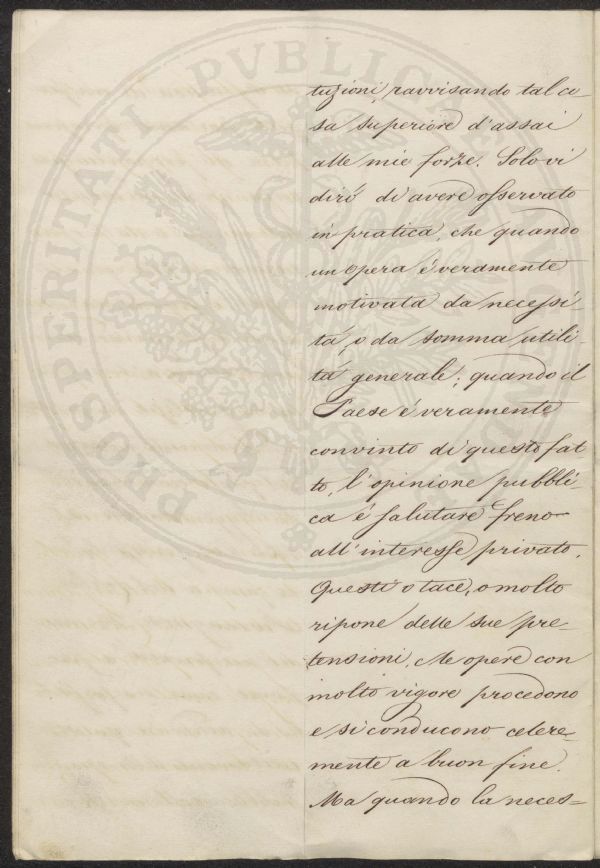 tuzioni, ravvisando tal co-
sa superiore d'assai
alle mie forze. Solo vi
dirò di avere osservato
in pratica, che quando
un opera é veramente
motivata da necessi-
tá, o da somma utili-
tà generale; quando il
Paese é veramente
convinto di questo fat
to, l'opinione pubbli-
ca é salutare freno
all'interesse privato.
Questi o tace, o molto
ripone delle sue pre-
tensioni, e le opere con
molto vigore procedono
e si conducono celere-
mente a buon fine.
Ma quando la neces=
PROSPERITATI PVBLICAE